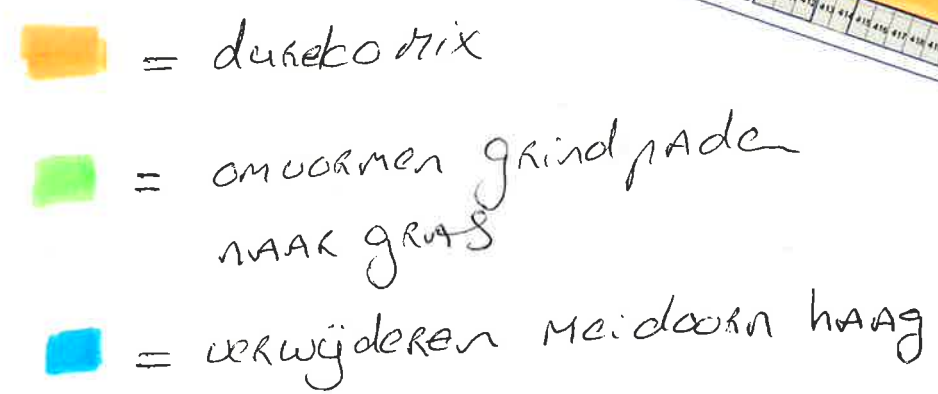 = durekomix
= omvormen grindpaden
naar gras
= verwijderen meidoorn haag